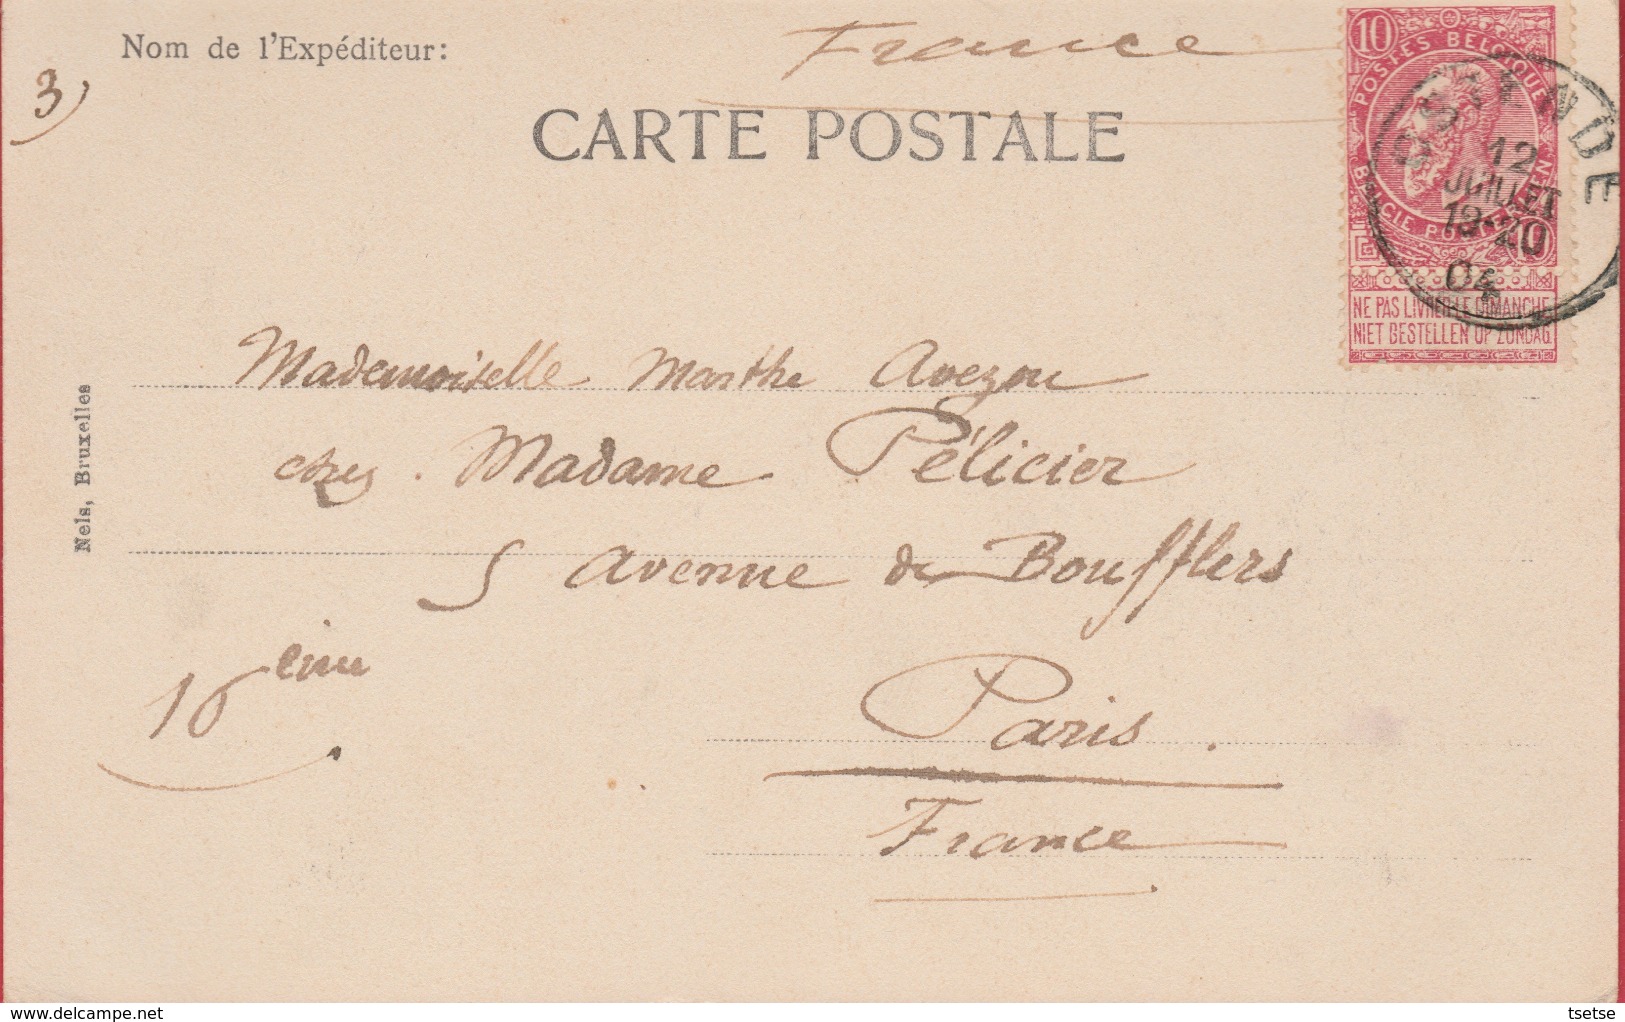 Nom de l'Expéditeur:
France
3)
CARTE POSTALE
10
POSTES BELGIQUE
BELGIE POSTERIJEN
10
NE PAS LIVRER LE DIMANCHE
NIET BESTELLEN OP ZONDAG
OSTENDE
12
JUILLET
18-20
04
Mademoiselle Marthe Avezou
chez Madame Pélicier
5 Avenue de Boufflers
16eme
Paris.
France
Nels, Bruxelles
delcampe.net
tsetse